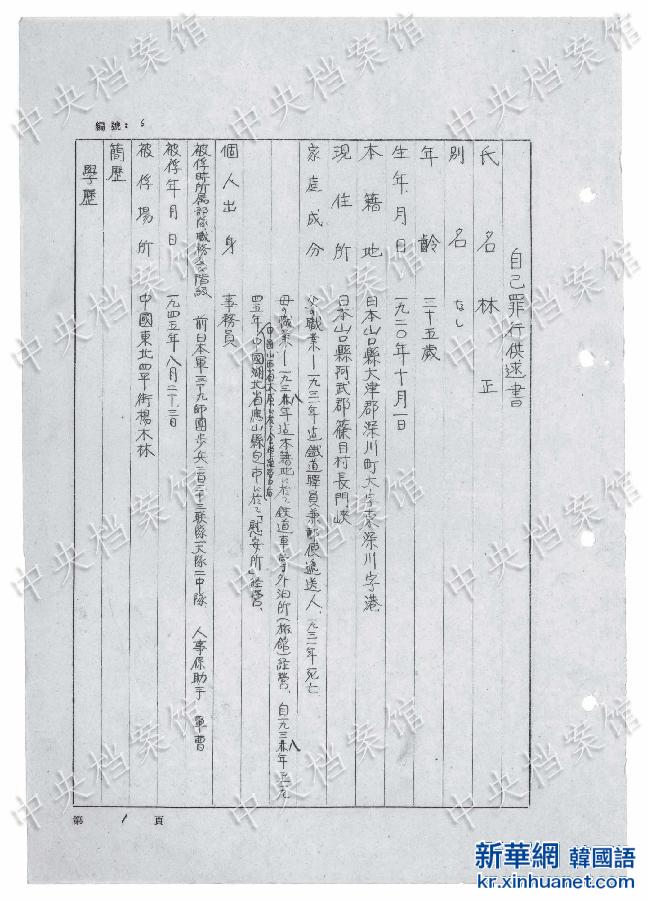 編號: 6
自己罪行供述書
氏名 林 正
別名 なし
年齡 三十五歲
生年月日 一九二〇年十月一日
本籍地 日本山口縣大津郡深川町大字東深川字港
現住所 日本山口縣阿武郡篠目村長門峽
家庭成分 父の職業―一九三一年迄鐵道職員兼郵便遞送人、一九三一年死亡
母の職業―一九三八年迄本籍地に於て鉄道乗務員外泊所(旅館)経営、自一九三八年至一九
四五年 中國湖北省當山縣 市に於て「慰安所」経営、
個人出身 事務員
被俘時所属部隊職務及階級 前日本軍三十九師團步兵二百三十三联隊一大隊二中隊 人事係助手 軍曹
被俘年月日 一九四五年八月二十三日
被俘場所 中國東北四平街楊木林
簡歷
學歷
第 1 頁
中央档案馆
新華網 韓國語
kr.xinhuanet.com